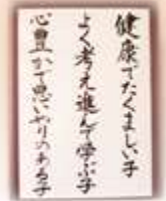 健康でたくましい子
よく考え進んで学ぶ子
心豊かで思いやりのある子